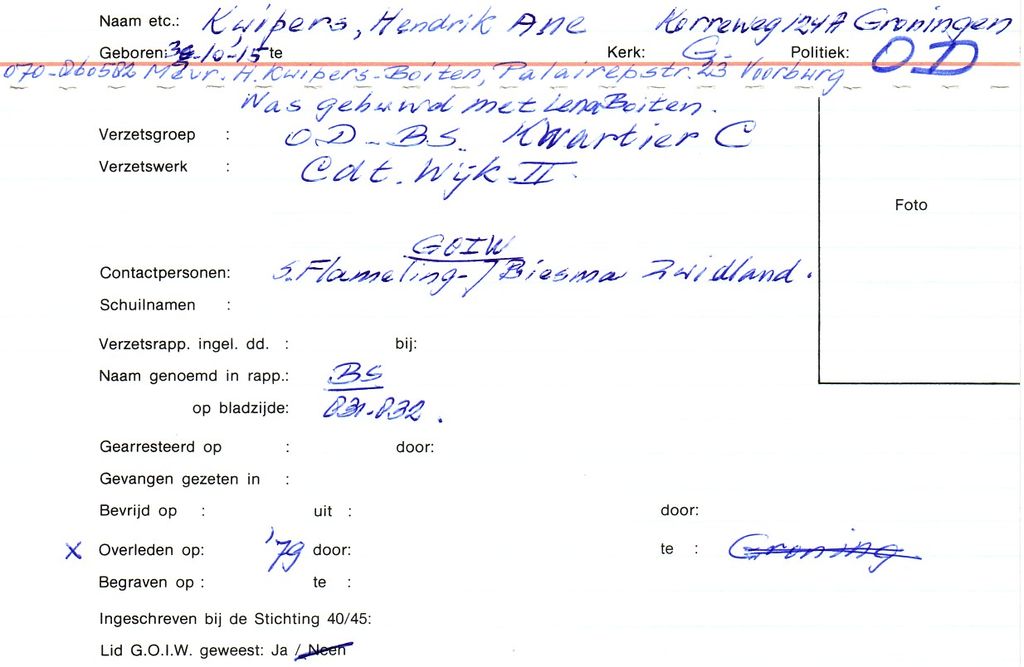 Naam etc.: Kuipers, Hendrik Ane Korreweg 124A Groningen
Geboren: 30-10-'15 te Kerk: G. Politiek: OD
070-860582 Mevr. H. Kuipers-Boiten, 23 Voorburg
Was gehuwd met Lena Boiten.
Verzetsgroep : OD-BS. Kwartier C
Verzetswerk : Cdt. Wijk II.
Foto
GOIW
Contactpersonen: S. Flameling-/Biesma Zuidland.
Schuilnamen :
Verzetsrapp. ingel. dd. : bij:
Naam genoemd in rapp.: BS
op bladzijde: 031-032.
Gearresteerd op : door:
Gevangen gezeten in :
Bevrijd op : uit : door:
X Overleden op: '79 door: te : Groning
Begraven op : te :
Ingeschreven bij de Stichting 40/45:
Lid G.O.I.W. geweest: Ja / Neen